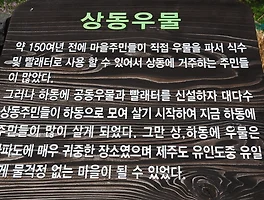 상동우물
약 150여년 전에 마을주민들이 직접 우물을 파서 식수
및 빨래터로 사용 할 수 있어서 상동에 거주하는 주민들
이 많았다.
그러나 하동에 공동우물과 빨래터를 신설하자 대다수
상동주민들이 하동으로 모여 살기 시작하여 지금 하동에
주민들이 많이 살게 되었다. 그만 상,하동에 우물은
파도에 매우 귀중한 장소였으며 제주도 유인도중 유일
게 물걱정 없는 마을이 될 수 있었다.